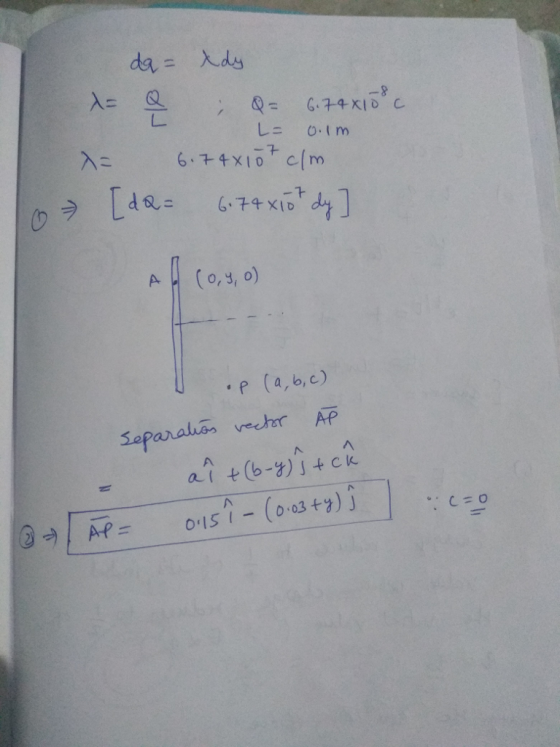 dq = λdy
λ = Q/L ; Q = 6.74×10⁻⁸ C
L = 0.1m
λ = 6.74×10⁻⁷ C/m
① ⇒ [dQ = 6.74×10⁻⁷ dy]
A (0, y, 0)
P (a, b, c)
Separation vector A̅P̅
= aî + (b-y)ĵ + ck̂
② ⇒ A̅P̅ = 0.15î - (0.03+y)ĵ ∵ c=0